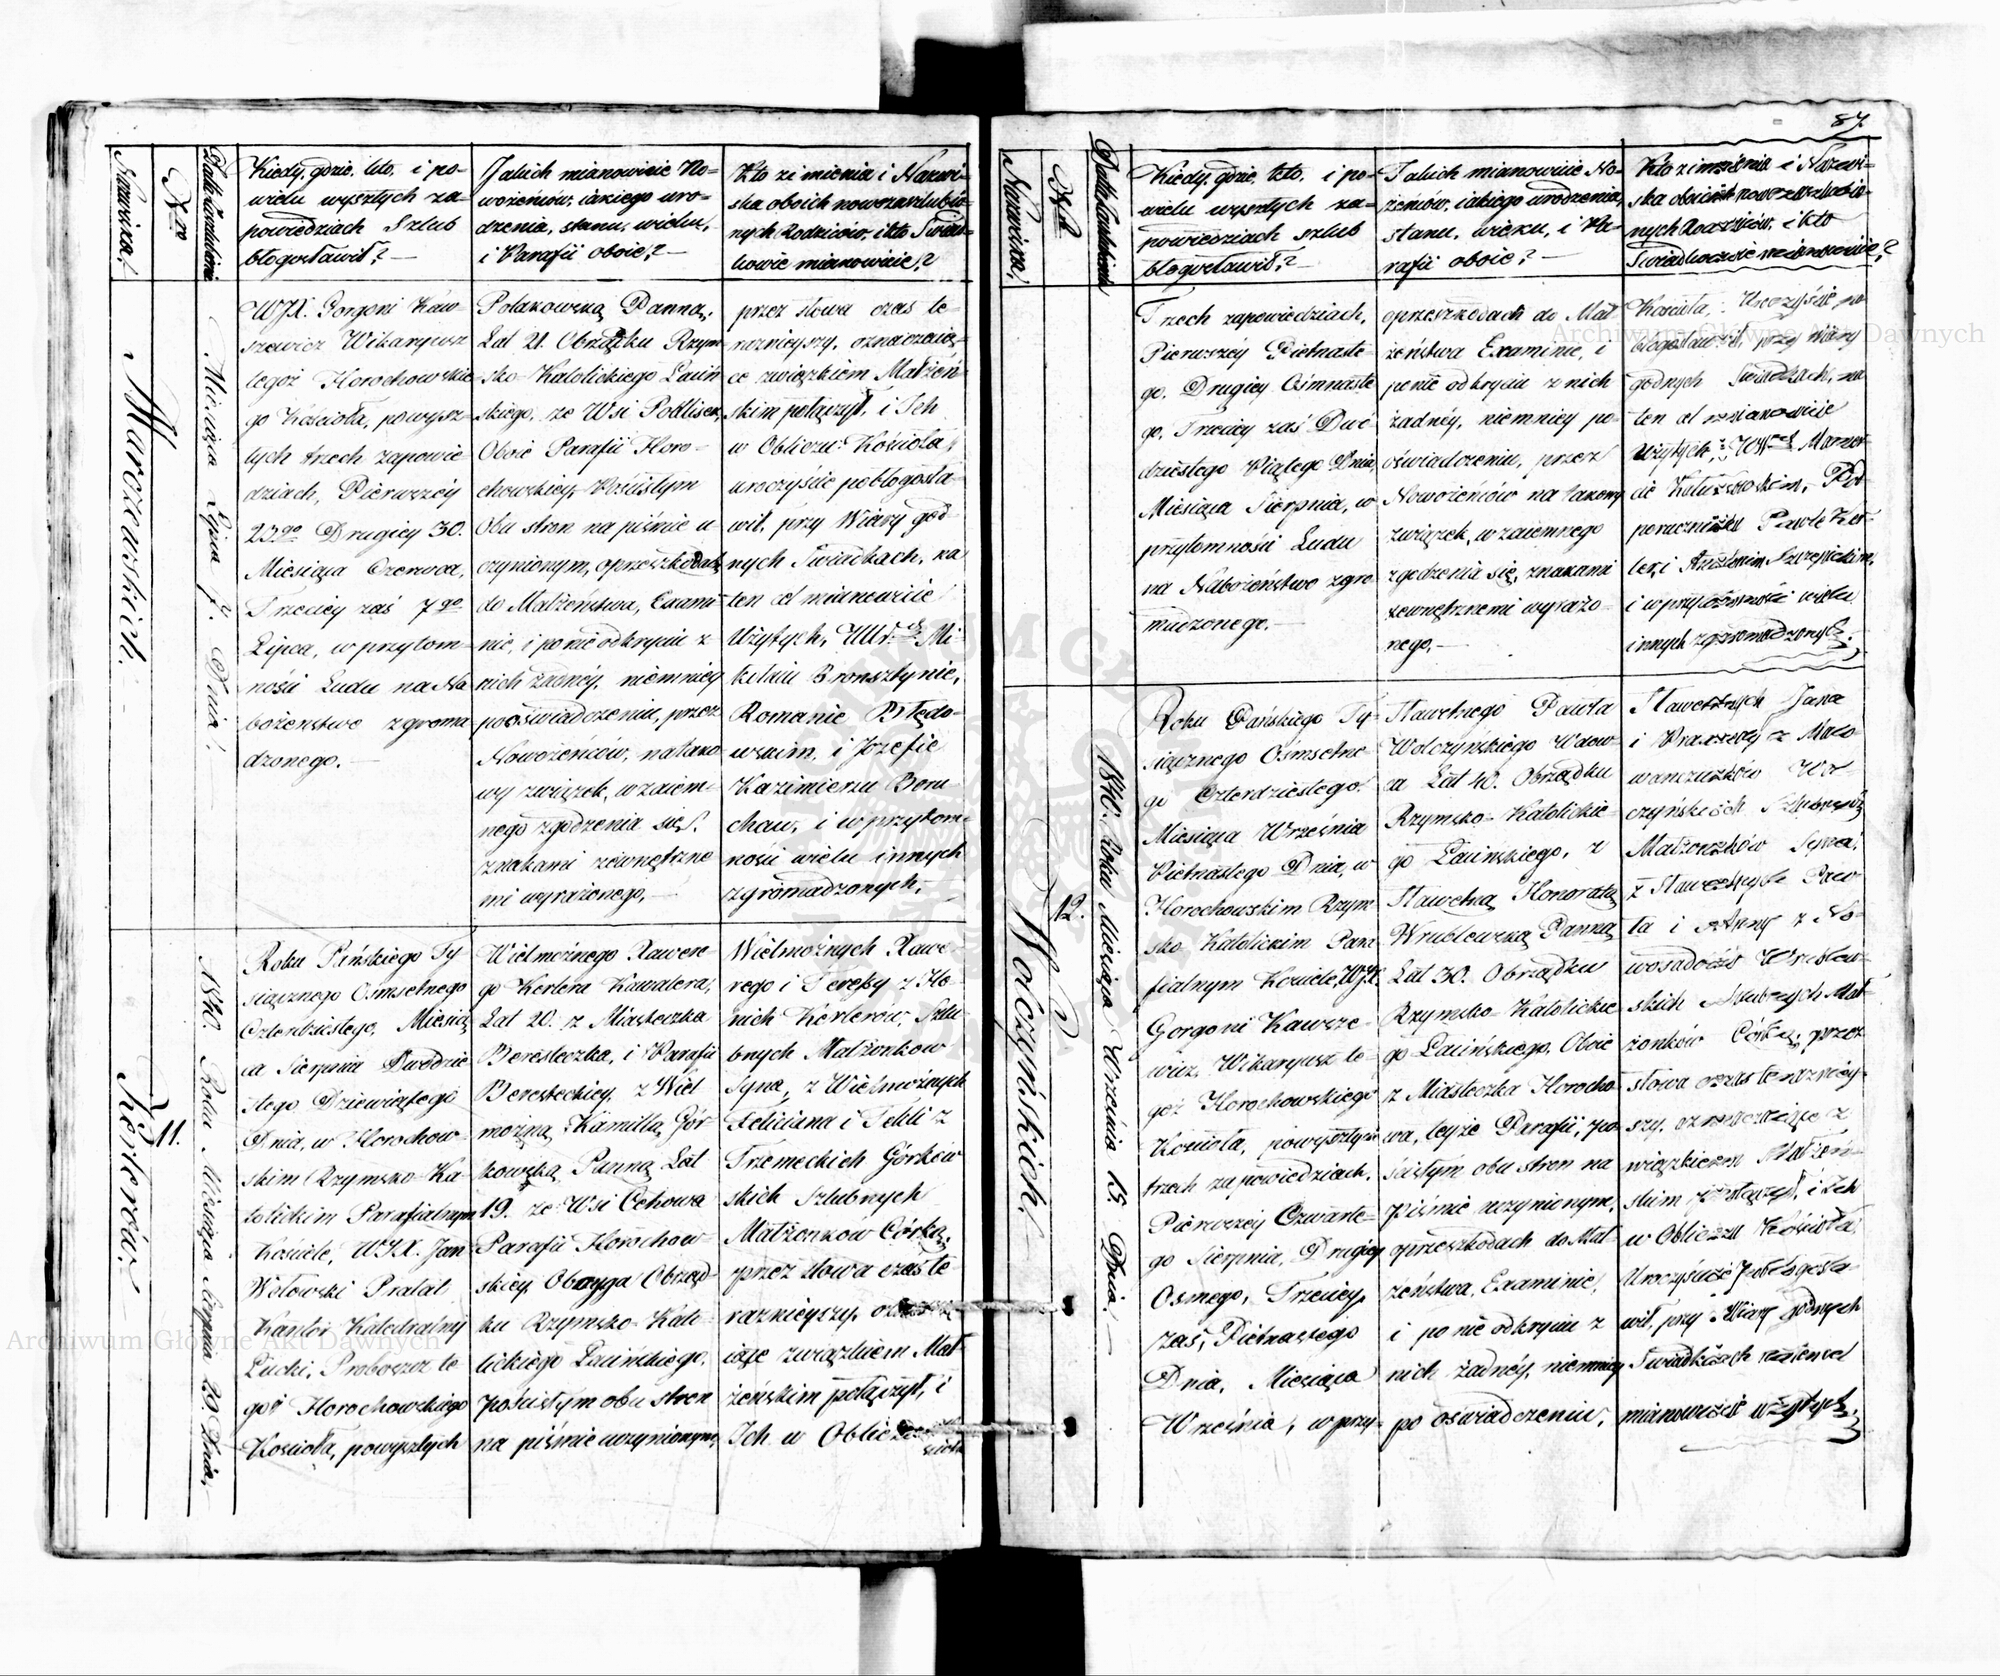 Nazwisca.
Nro
Datta zaślubienia
Kiedy, gdzie, kto, i po
wielu wyszłych za-
powiedziach Szlub
błogosławił? —
Jakich mianowicie No-
wożeńców, iakiego uro-
dzenia, stanu, wieku,
i Parafii oboie? —
Kto z imienia i Nazwi-
ska oboich nowozaślubio-
nych Rodziców, i kto Świad-
kowie mianowicie?
Marożewskich.
Miesiąca Lipca 7. Dnia.
WJX. Gorgoni Kaw-
szewicz Wikaryusz
tegoż Horochowskie
go Kościoła, powysz-
łych trzech zapowie
dziach, Pierwszéy
23go Drugiey 30.
Miesiąca Czerwca,
Trzeciey zaś 7go
Lipca, w przytom-
ności Ludu na Na
bożeństwo zgroma
dzonego. —
Polakowską Panną,
Lat 21. Obrządku Rzym
sko-Katolickiego Łaciń
skiego, ze Wsi Podlisek,
Oboie Parafii Horo-
chowskiey, Pościstym
Obu stron na piśmie u-
czynionym, oprzeszkodach
do Małżeństwa, Exami-
nie, i po nie odkryciu z
nich żadnéy, niemniey
pooświadczeniu, przez
Nowożeńców, na tako
wy związek, wzaiem-
nego zgodzenia się,
znakami zéwnętrzne
mi wyrażonego, —
przez słowa czas te-
raznieyszy, oznaczaią-
ce związkiem Małżeń-
skim połączył, i Ich
w Obliczu Kościoła,
uroczyście pobłogosła-
wił, przy Wiary god-
nych Świadkach, na
ten cel mianowicie
Użytych, Mi-
kołaiu Bronsztynie,
Romanie Błędo-
wskim, i Jozefie
Kazimierzu Boru-
chau, i w przytom-
ności wielu innych
zgromadzonych, —
Kerlerów.
11.
1840. Roku Miesiąca Sierpnia 29. Dnia, —
Roku Pańskiego Ty
siącznego Ośmsetnego
Czterdziestego, Miesią
ca Sierpnia Dwudzie
stego Dziewiątego
Dnia, w Horochow-
skim Rzymsko-Ka-
tolickim Parafialnym
Kościele, WJX. Jan
Wołowski Prałat
Kantor Katedralny
Łucki, Proboszcz te
goż Horochowskiego
Kościoła, powyszłych
Wielmożnego Xawere
go Kerlera Kawalera,
Lat 20. z Miasteczka
Beresteczka, i Parafii
Beresteckiey, z Wiel
możną Kamillą Gór-
kowską Panną Lat
19. ze Wsi Cehowa
Parafii Horochow-
skiey Oboyga Obrząd-
ku Rzymsko-Kato-
lickiego Łacińskiego,
pościstym obu stron
na piśmie uczynionym,
Wielmożnych Xawe-
rego i Teressy z Ho-
nich Kerlerów, Szlu-
bnych Małżonków
Syna, z Wielmożnych
Feliciana i Tekli z
Trzemeckich Górkow
skich Szlubnych
Małżonków Córką,
przez słowa czas te
raznieyszy,
iące związkiem Mał-
żeńskim połączył, i
Ich w Obliczu
87.
Nazwisca.
Nro
Datta zaślubienia
Kiedy, gdzie, kto, i po-
wielu wyszłych za-
powiedziach szlub
błogosławił? —
Jakich mianowicie No-
żeńców, iakiego urodzenia,
stanu, wieku, i Pa-
rafii oboie? —
Kto z imienia i Nazwi-
ska oboich nowozaszlubio-
nych Rodziców, i kto
Świadkowie mianowicie?
Trzech zapowiedziach,
Pierwszéy Pietnaste-
go, Drugiey Ośmnaste
go, Trzeciey zaś Dwó
dziestego Piątego Dnia
Miesiąca Sierpnia, w
przytomności Ludu
na Nabożeństwo zgro
madzonego. —
oprzeszkodach do Mał
żeństwa Examinie, i
ponie odkryciu z nich
żadnéy, niemniey po-
oświadczeniu, przez
Nowożeńców na takowy
związek, wzaiemnego
zgodzenia się, znakami
zewnętrznemi wyrażo-
nego, —
Kościoła, Uroczyście po
błogosławił, przy Wiary
godnych Świadkach, na
ten cel mianowicie
Użytych,
poruczniku Pawle Ker-
lerz, i
i w przytomności wielu
innych zgromadzonych.
Wołczyńskich.
12.
1840. Roku Miesiąca Września 15. Dnia. —
Roku Pańskiego Ty-
siącznego Ośmsetne
go Czterdziestego,
Miesiąca Września
Pietnastego Dnia, w
Horochowskim Rzym
sko Katolickim Para
fialnym Kościele, WJX.
Gorgoni Kawsze-
wicz, Wikaryusz te-
goż Horochowskiego
Kościoła, powyszłych
trzech zapowiedziach,
Pierwszéy Czwarte-
go Sierpnia, Drugiey
Osmego, Trzeciey
zaś, Pietnastego
Dnia, Miesiąca
Września, w przy-
Sławetnego Pawła
Wołczyńskiego Wdow
ca Lat 40. Obrządku
Rzymsko-Katolickie-
go Łacińskiego, z
Sławetną Honoratą
Wrublewską Panną
Lat 30. Obrządku
Rzymsko-Katolickie
go Łacińskiego, Oboie
z Miasteczka Horocho
wa, teyże Parafii, po
ścistym obu stron na
Piśmie uczynionym,
oprzeszkodach do Mał-
żeństwa, Examinie,
i po nie odkryciu z
nich żadnéy, niemniey
po oświadczeniu,
Sławetnych Jana
i Praxedy z Mało
wanczuków Wol-
czyńskich Szlubnych
Małżonków Syna,
z Sławetnych Paw-
ła i Anny z No-
wosadów Wrublew-
skich Szlubnych Mał-
żonków Córką, przez
słowa czas teraźniey-
szy, oznaczaiące z
wiązkiem Małżeń-
skim połączył, i Ich
w Obliczu Kościoła,
Uroczyście Pobłogosła-
wił, przy Wiary godnych
Świadkach na ten cel
mianowicie użytych,
Archiwum Główne Akt Dawnych
Archiwum Główne Akt Dawnych